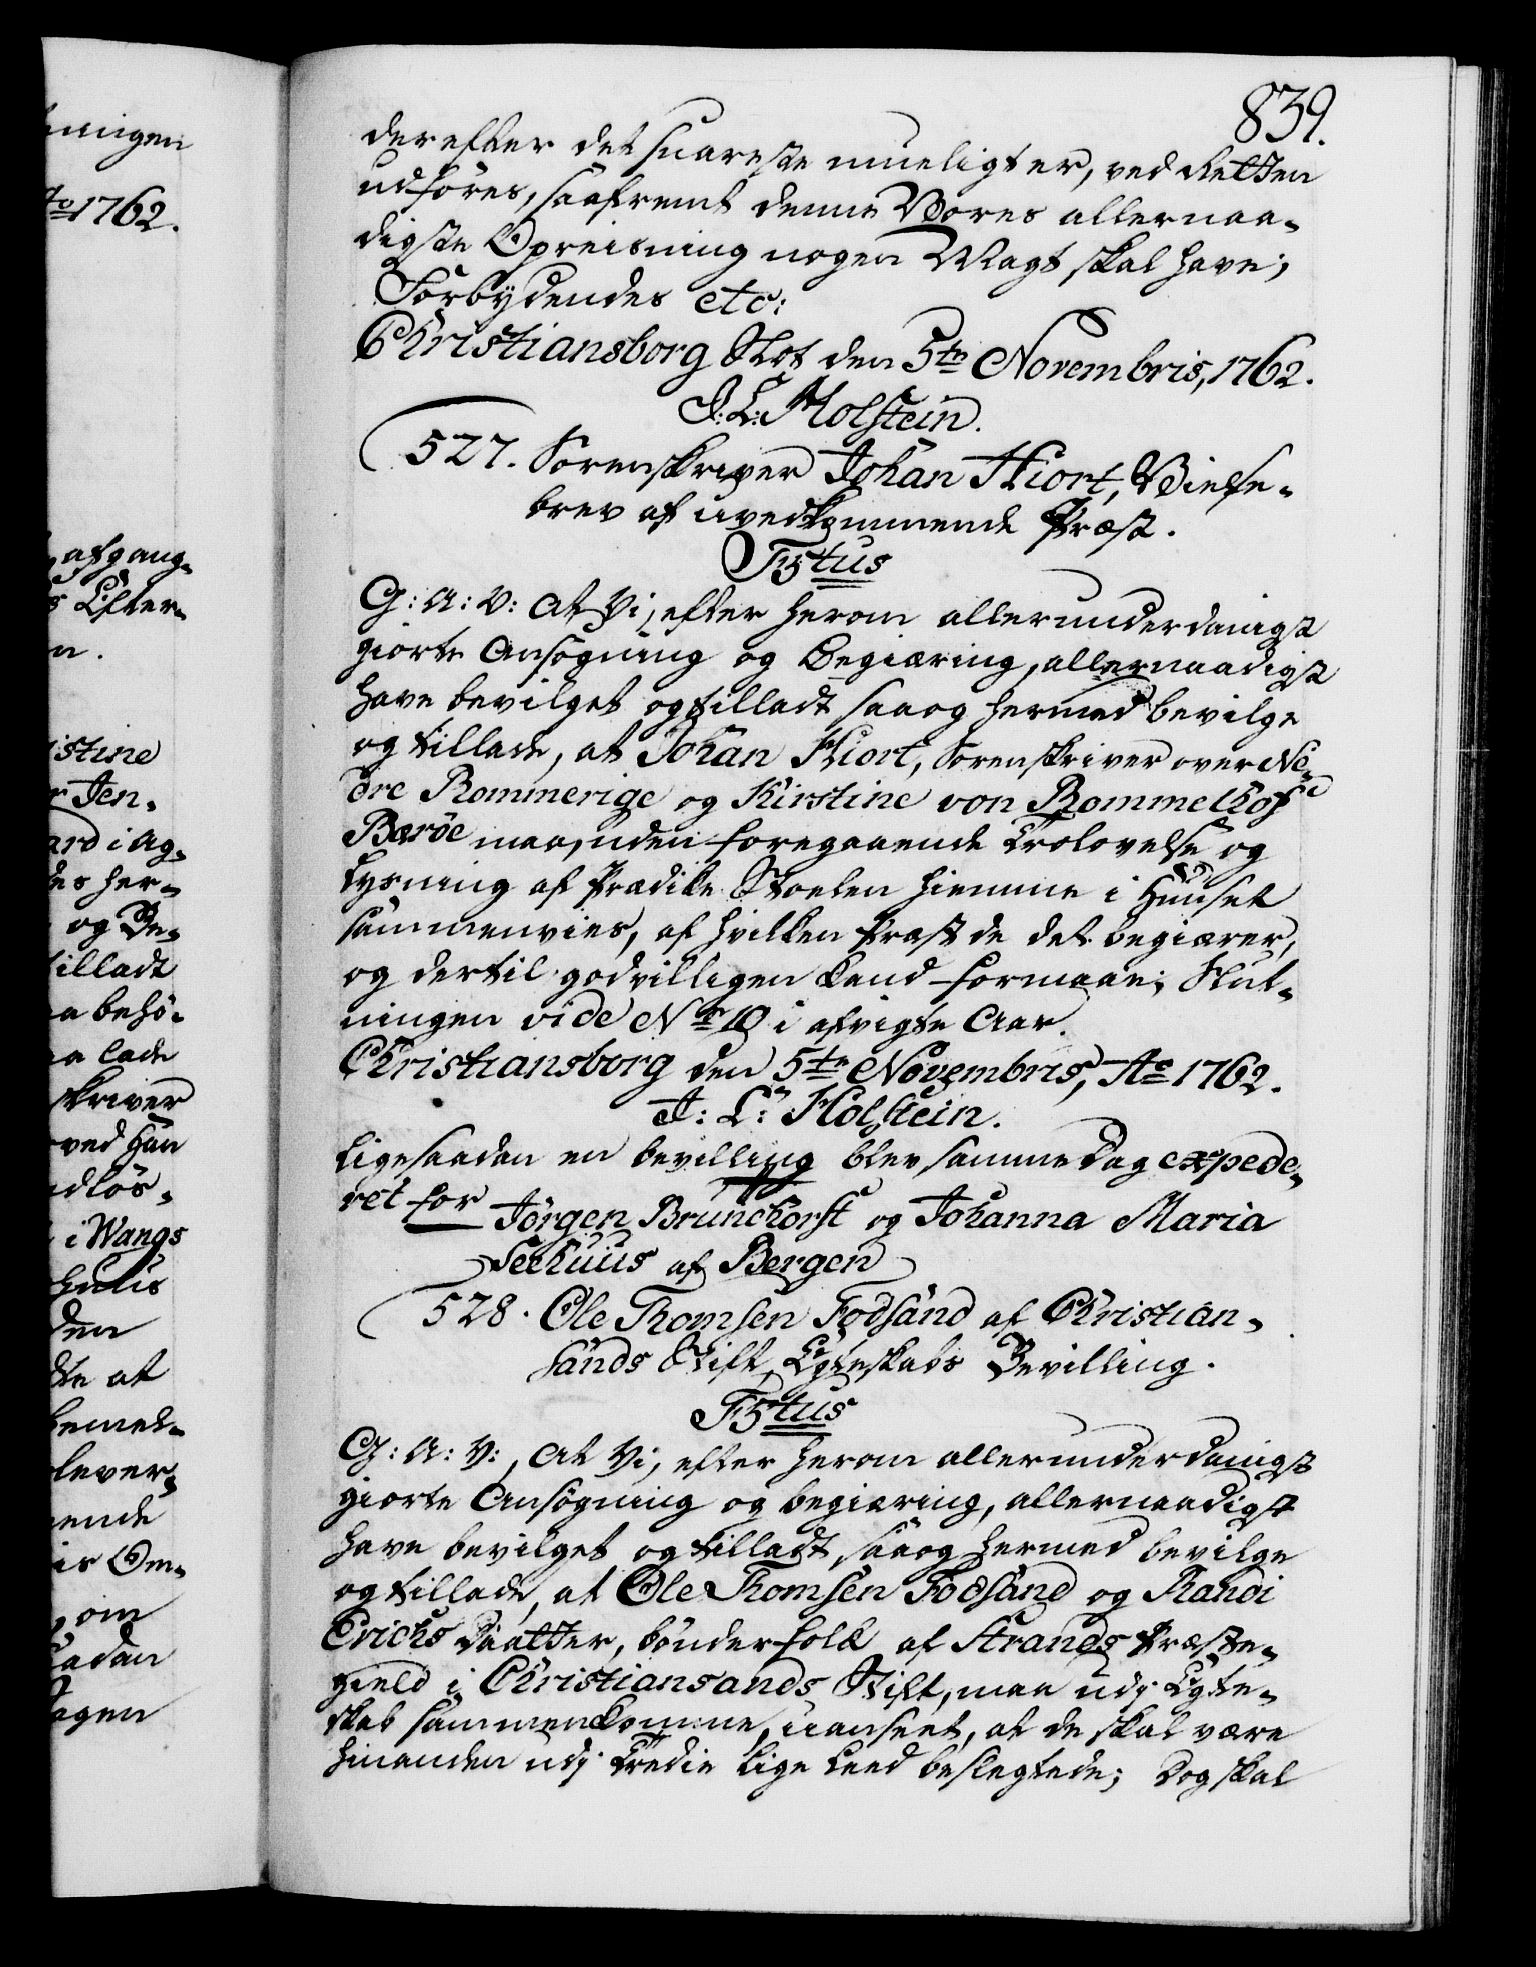 839.
derefter det snareste mueligt er, ved Retten
udføres, saafremt denne Vores allernaa-
digste Opreisning nogen Magt skal have;
Forbydendes etc:
Christiansborg Slot den 5te Novembris, 1762.
J: L: Holstein.
527. Sorenskriver Johan Hiort, Vielse-
brev af uvedkommende Præst.
F5tus
G: A: V: at Vi, efter herom allerunderdanigst
giorte Ansøgning og Begiæring, allernaadigst
have bevilget og tilladt saa og hermed bevilge
og tillade, at Johan Hiort, Sorenskriver over Ne-
dre Rommerige og Kirstine von Rommelhof
Barøe maa, uden foregaaende Trolovelse og
Lysning af Prædike Stoelen hiemme i Huuset
sammenvies, af hvilken Præst de det begiærer,
og dertil godvilligen kand formaae; Slut-
ningen vide Nr 10 i afvigte Aar.
Christiansborg den 5te Novembris, Ao 1762.
J: L: Holstein.
Ligesaadan en bevilling blev samme Dag expede-
ret for Jørgen Brunchorst og Johanna Maria
Seehuus af Bergen
528. Ole Thomsen Fodsand af Christian-
sands Stift, Egteskabs Bevilling.
F5tus
G: A: V:, at Vi, efter herom allerunderdanigst
giorte Ansøgning og begiæring, allernaadigst
have bevilget og tilladt, saa og hermed bevilge
og tillade, at Ole Thomsen Fodsand og Randi
Erichs Daatter, bønderfolk af Strands Præste-
gield i Christiansands Stift, maa udj Egte-
skab sammenkomme, uanseet, at de skal være
hinanden udj Tredie Lige Leed beslegtede; Dog skal